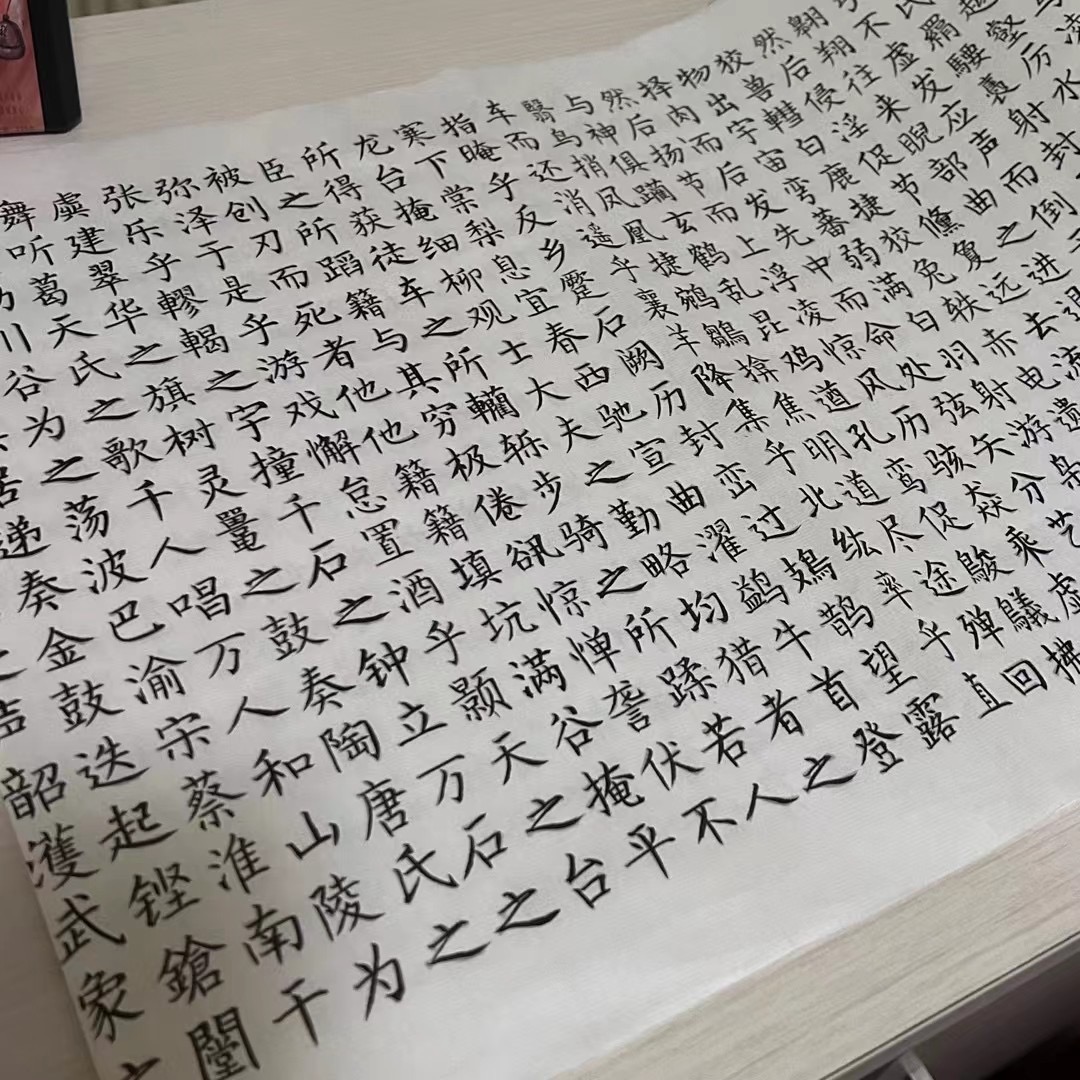 越壑厉水
羂騕褭射封
不虚发应声而倒
翱翔往来睨部曲之进退
然后侵淫促节儵夐远去流
狡兽轊白鹿捷狡兔轶赤电遗
物出宇宙弯蕃弱满白羽射游枭
择肉而后发先中而命处弦矢分艺
然后扬节而上浮凌惊风历骇猋乘虚
与神俱躏玄鹤乱昆鸡遒孔鸾促鵔鸃拂
翳鸟捎凤凰捷鹓鶵揜焦明道尽途殚回
车而还消遥乎襄羊降集乎北纮率乎直
指晻乎反乡蹷石阙历封峦过鳷鹊望露
寒下棠梨息宜春西驰宣曲濯鹢牛首登
龙台掩细柳观士大夫之勤略均猎者之
所得获徒车之所轥轹步骑之所蹂若人
臣之所蹈籍与其穷极倦䜲惊惮詟伏不
被创刃而死者他他籍籍填坑满谷掩平
弥泽于是乎游戏懈怠置酒乎颢天之台
张乐乎轇輵之宇撞千石之钟立万石之
虡建翠华之旗树灵鼍之鼓奏陶唐氏之
舞听葛天氏之歌千人唱万人和山陵为
川谷为之荡波巴渝宋蔡淮南干
居递奏金鼓迭起铿鎗闛
韶濩武象之